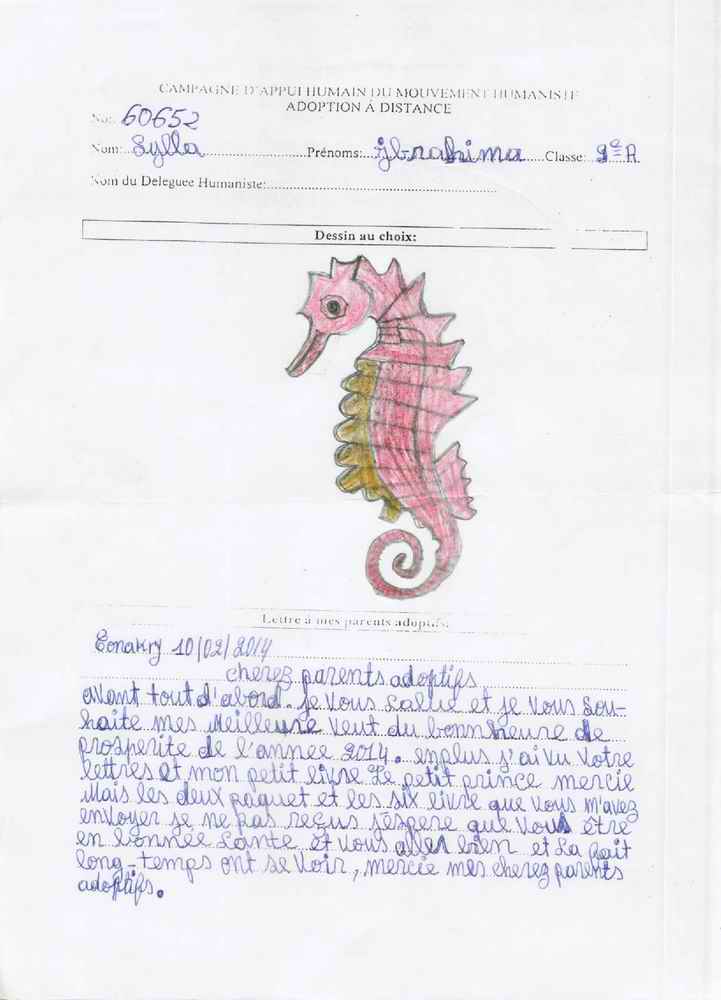 CAMPAGNE D'APPUI HUMAIN DU MOUVEMENT HUMANISTE
ADOPTION À DISTANCE
No: 60652
Nom: Sylla Prénoms: ibrahima Classe: 9e A
Nom du Deleguee Humaniste:
Dessin au choix:
Lettre à mes parents adoptifs:
Conakry 10/02/2014
cherez parents adoptifs
avant tout d'abord. je vous salue et je vous sou-
haite mes Meilleure veut du bonnheure de
prosperite de l'annee 2014. enplus j'ai vu votre
lettres et mon petit livre. Le petit prince mercie
Mais les deux paquet et les six livre que vous m'avez
envoyer je ne pas reçus j'espere que vous être
en bonnée sante et vous aller bien et sa fait
long-temps ont se voir, mercie mes cherez parents
adoptifs.